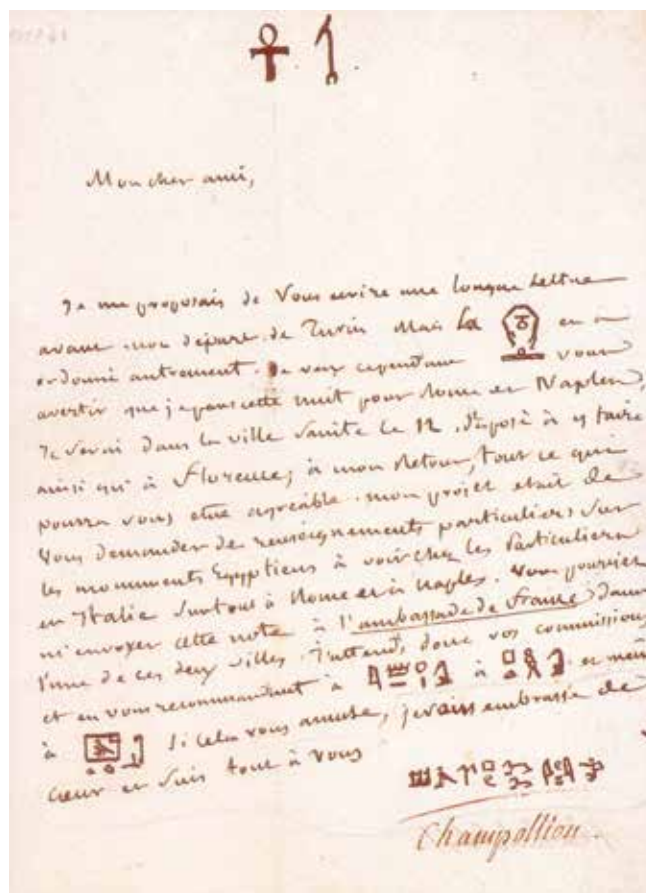 𓋹
Mon cher ami,
Je me proposais de Vous écrire une longue Lettre
avant mon départ de Turin Mais La en a
ordonné autrement. Je veux cependant vous
avertir que je pars cette nuit pour Rome et Naples,
Je serai dans la ville Sainte le 12, disposé à y faire
ainsi qu'à Florence, à mon Retour, tout ce qui
pourra vous être agréable. mon projet était de
Vous demander de renseignements particuliers sur
les monuments Egyptiens à voir chez les Particuliers
en Italie surtout à Rome et à Naples. Vous pourriez
m'envoyer cette note à l'ambassade de France dans
l'une de ces deux villes. J'attends donc vos commissions
et en vous recommandant à à et même
à si cela vous amuse, je vous embrasse de
cœur et suis tout à vous
Champollion.